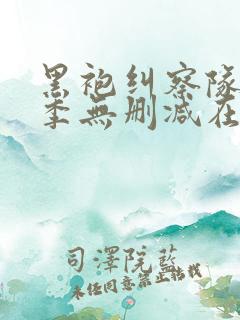 黑袍纠察队
季无删减在
司澤院藍
未经同意禁止转载